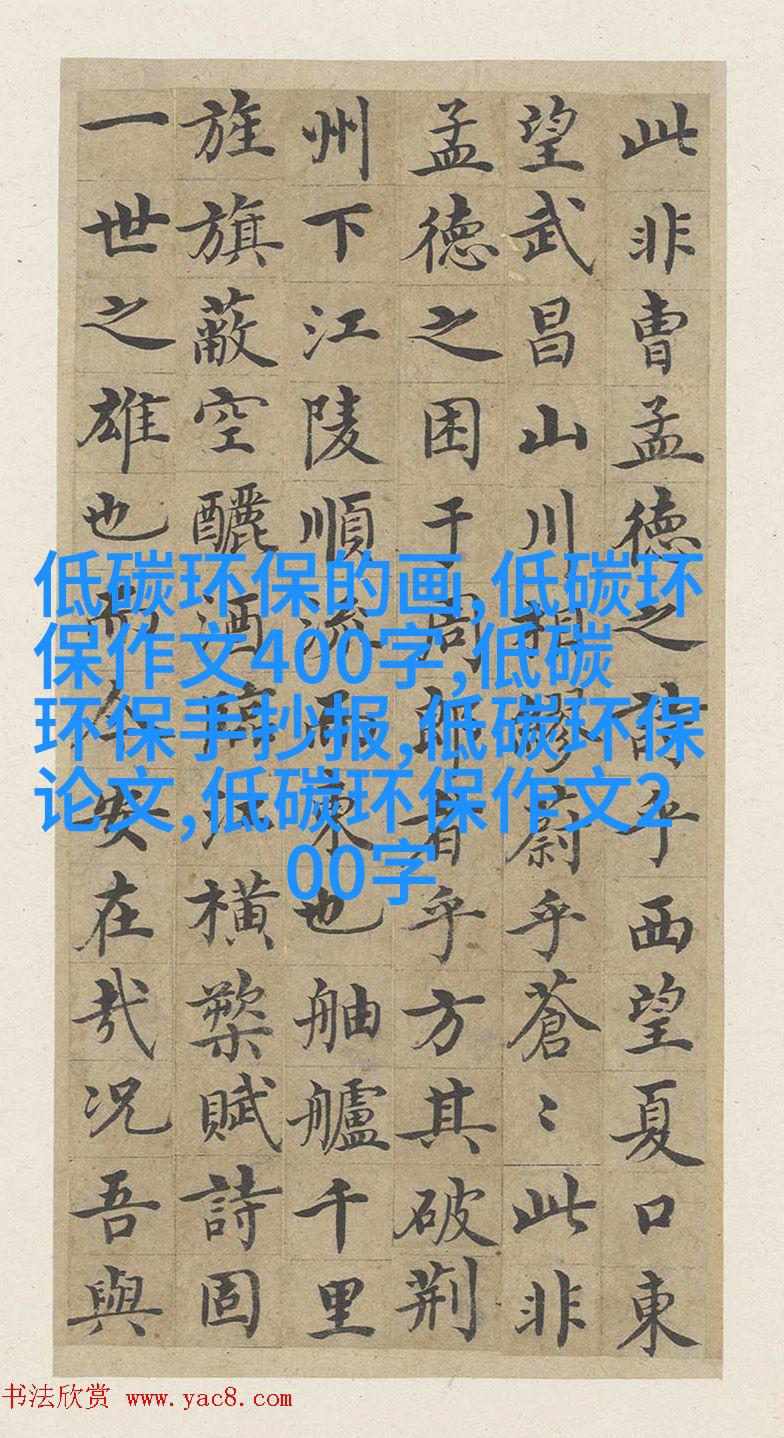 此非曹孟德之詩乎西望夏口東
望武昌山川相繆蔚乎蒼〻此非
孟德之困于周郎者乎方其破荊
州下江陵順流而東也舳艫千里
旌旗蔽空釃酒臨江橫槊賦詩固
一世之雄也而今安在哉況吾與
低碳环保的画,低碳环
保作文400字,低碳
环保手抄报,低碳环保
论文,低碳环保作文2
00字
书法欣赏 www.yac8.com